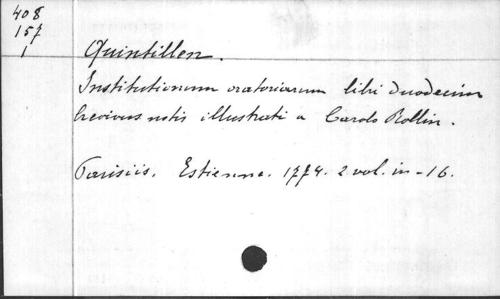 408
157
1
Quintilien.
Institutionum oratoriarum libri duodecim
brevibus notis illustrati a Carolo Rollin.
Parisiis. Estienne. 1774. 2 vol. in-16.